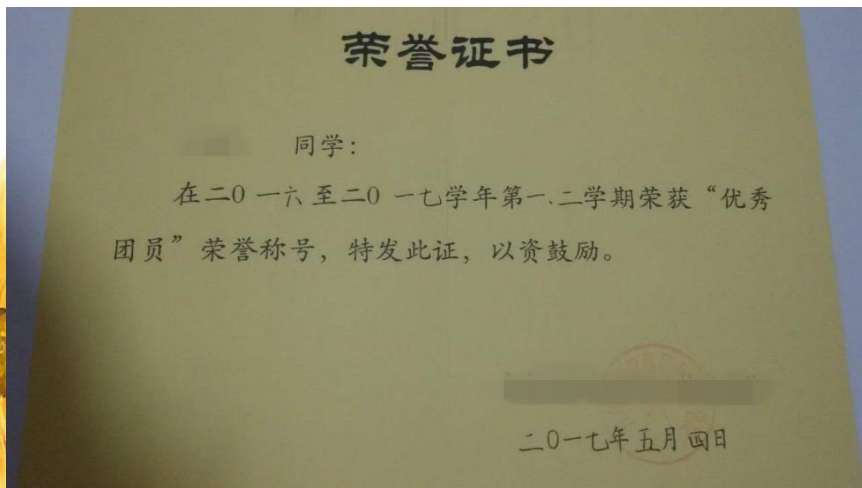 荣誉证书
同学：
在二0一六至二0一七学年第一、二学期荣获“优秀
团员”荣誉称号，特发此证，以资鼓励。
二0一七年五月四日